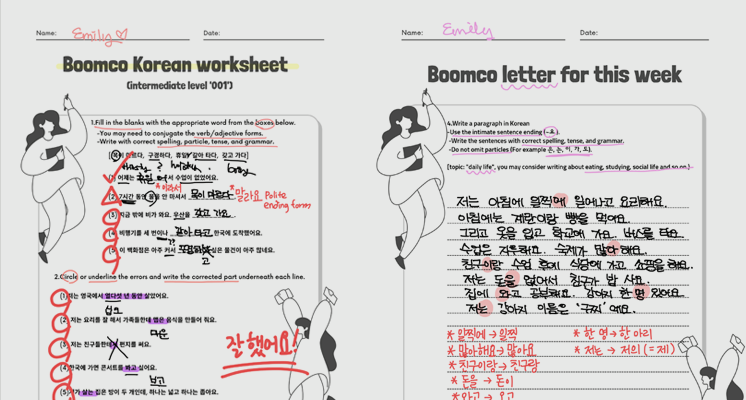 Name: Emily
Date:
Boomco Korean worksheet
(intermediate level '001')
1.Fill in the blanks with the appropriate word from the boxes below.
-You may need to conjugate the verb/adjective forms.
-Write with correct spelling, particle, tense, and grammar.
구경하다, 휴일, 갈아 타다, 갖고 가다]
busy
(1) 어제는 휴일 서 수업이 없었어요.
*이라서
(2) 7시간 동안 을 안 마셔서 목이 마르다
*말라요 Polite
ending form
(3) 지금 밖에 비가 와요. 우산을 갖고 가요.
(4) 비행기를 세 번이나 갈아 타고 한국에 도착했어요.
??
(5) 이 백화점은 아주 커서 싶은 물건이 아주 많네요.
고
2.Circle or underline the errors and write the corrected part underneath each line.
(1) 저는 영국에서 열다섯 년 동안 살았어요.
십오
(2) 저는 요리를 잘 해서 가족들한테 맵은 음식을 만들어 줘요.
매운
(3) 저는 친구들한테 편지를 써요.
(4) 한국에 가면 콘서트를 봐고 싶어요.
보고
(5) 제가 살는 집은 방이 두 개인데, 하나는 넓고 하나는 좁아요.
잘 했어요!
Name: Emily
Date:
Boomco letter for this week
4.Write a paragraph in Korean
-Use the intimate sentence ending (-요).
-Write the sentences with correct spelling, tense, and grammar.
-Do not omit particles (For example 은, 는, 이, 가, 로).
[topic: "daily life", you may consider writing about eating, studying, social life and so on.]
저는 아침에 일찍에 일어나고 요리해요.
아침에는 계란이랑 빵을 먹어요.
그리고 옷을 입고 학교에 가요. 버스를 타요.
수업은 지루해요. 숙제가 많다해요.
친구이랑 수업 후에 식당에 가고 쇼핑을 해요.
저는 돈을 없어서 친구가 밥 사요.
집에 와고 공부해요. 강아지 한 명 있어요.
저는 강아지 이름은 '구찌' 예요.
*일찍에→일찍
*한 명→한 마리
*많아해요→많아요
*저는→저의 (=제)
*친구이랑→친구랑
*돈을→돈이
*와고→오고